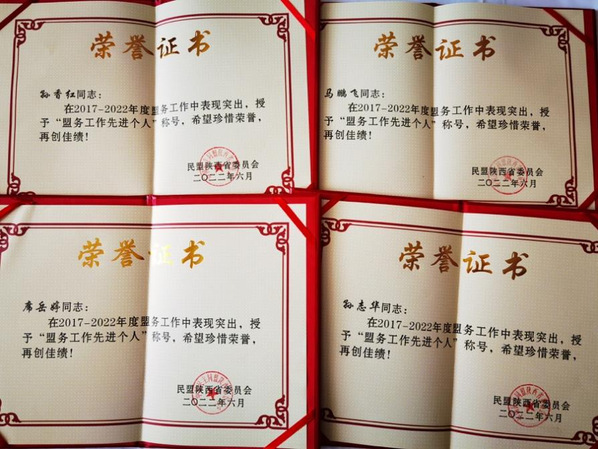 荣誉证书
孙香红同志：
在2017-2022年度盟务工作中表现突出，授
予“盟务工作先进个人”称号，希望珍惜荣誉，
再创佳绩！
民盟陕西省委员会
二〇二二年六月
荣誉证书
马鹏飞同志：
在2017-2022年度盟务工作中表现突出，授
予“盟务工作先进个人”称号，希望珍惜荣誉，
再创佳绩！
民盟陕西省委员会
二〇二二年六月
荣誉证书
席岳婷同志：
在2017-2022年度盟务工作中表现突出，授
予“盟务工作先进个人”称号，希望珍惜荣誉，
再创佳绩！
民盟陕西省委员会
二〇二二年六月
荣誉证书
孙志华同志：
在2017-2022年度盟务工作中表现突出，授
予“盟务工作先进个人”称号，希望珍惜荣誉，
再创佳绩！
民盟陕西省委员会
二〇二二年六月